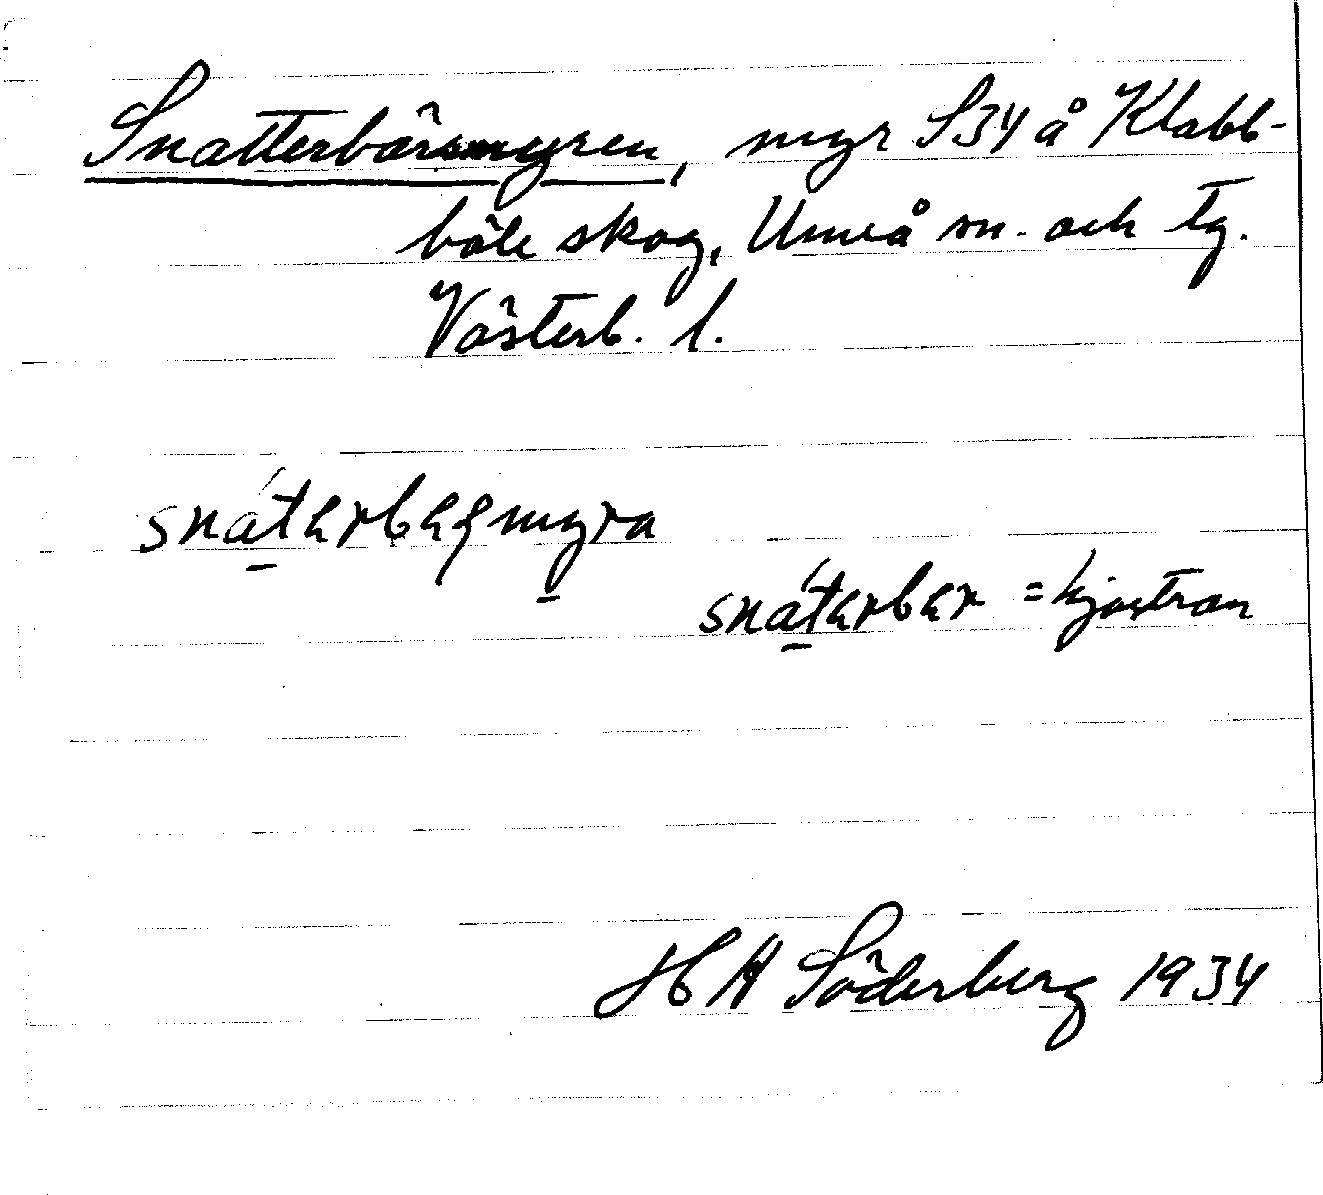 Snatterbärsmyren, myr S34 å Klabb-
böle skog, Umeå sn. och tg.
Västerb. l.
snátərbæʂmyra
snátərbær = hjortron
H A Söderberg 1934